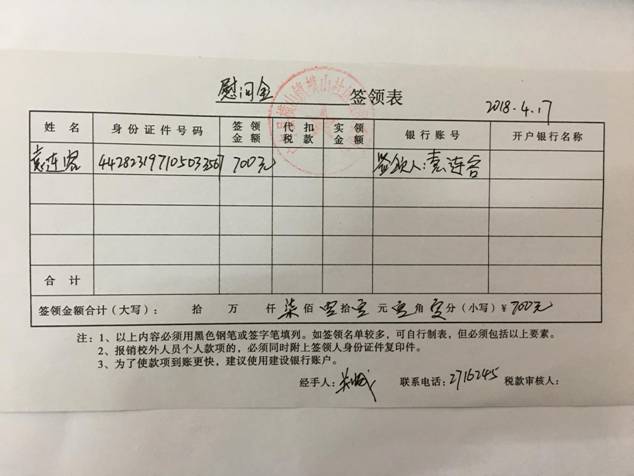 慰问金 签领表 2018.4.17
姓名 身份证件号码 签领金额 代扣税款 实领金额 银行账号 开户银行名称
袁连容 700元 签领人:袁连容
合计
签领金额合计(大写): 拾 万 仟 柒 佰 零 拾 零 元 零 角 零 分(小写)¥ 700元
注:1、以上内容必须用黑色钢笔或签字笔填列。如签领名单较多,可自行制表,但必须包括以上要素。
2、报销校外人员个人款项的,必须同时附上签领人身份证件复印件。
3、为了使款项到账更快,建议使用建设银行账户。
经手人: 联系电话:2716245 税款审核人: